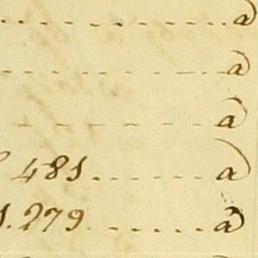 .................. a
.................. a
.................. a
481...... a
279....... a